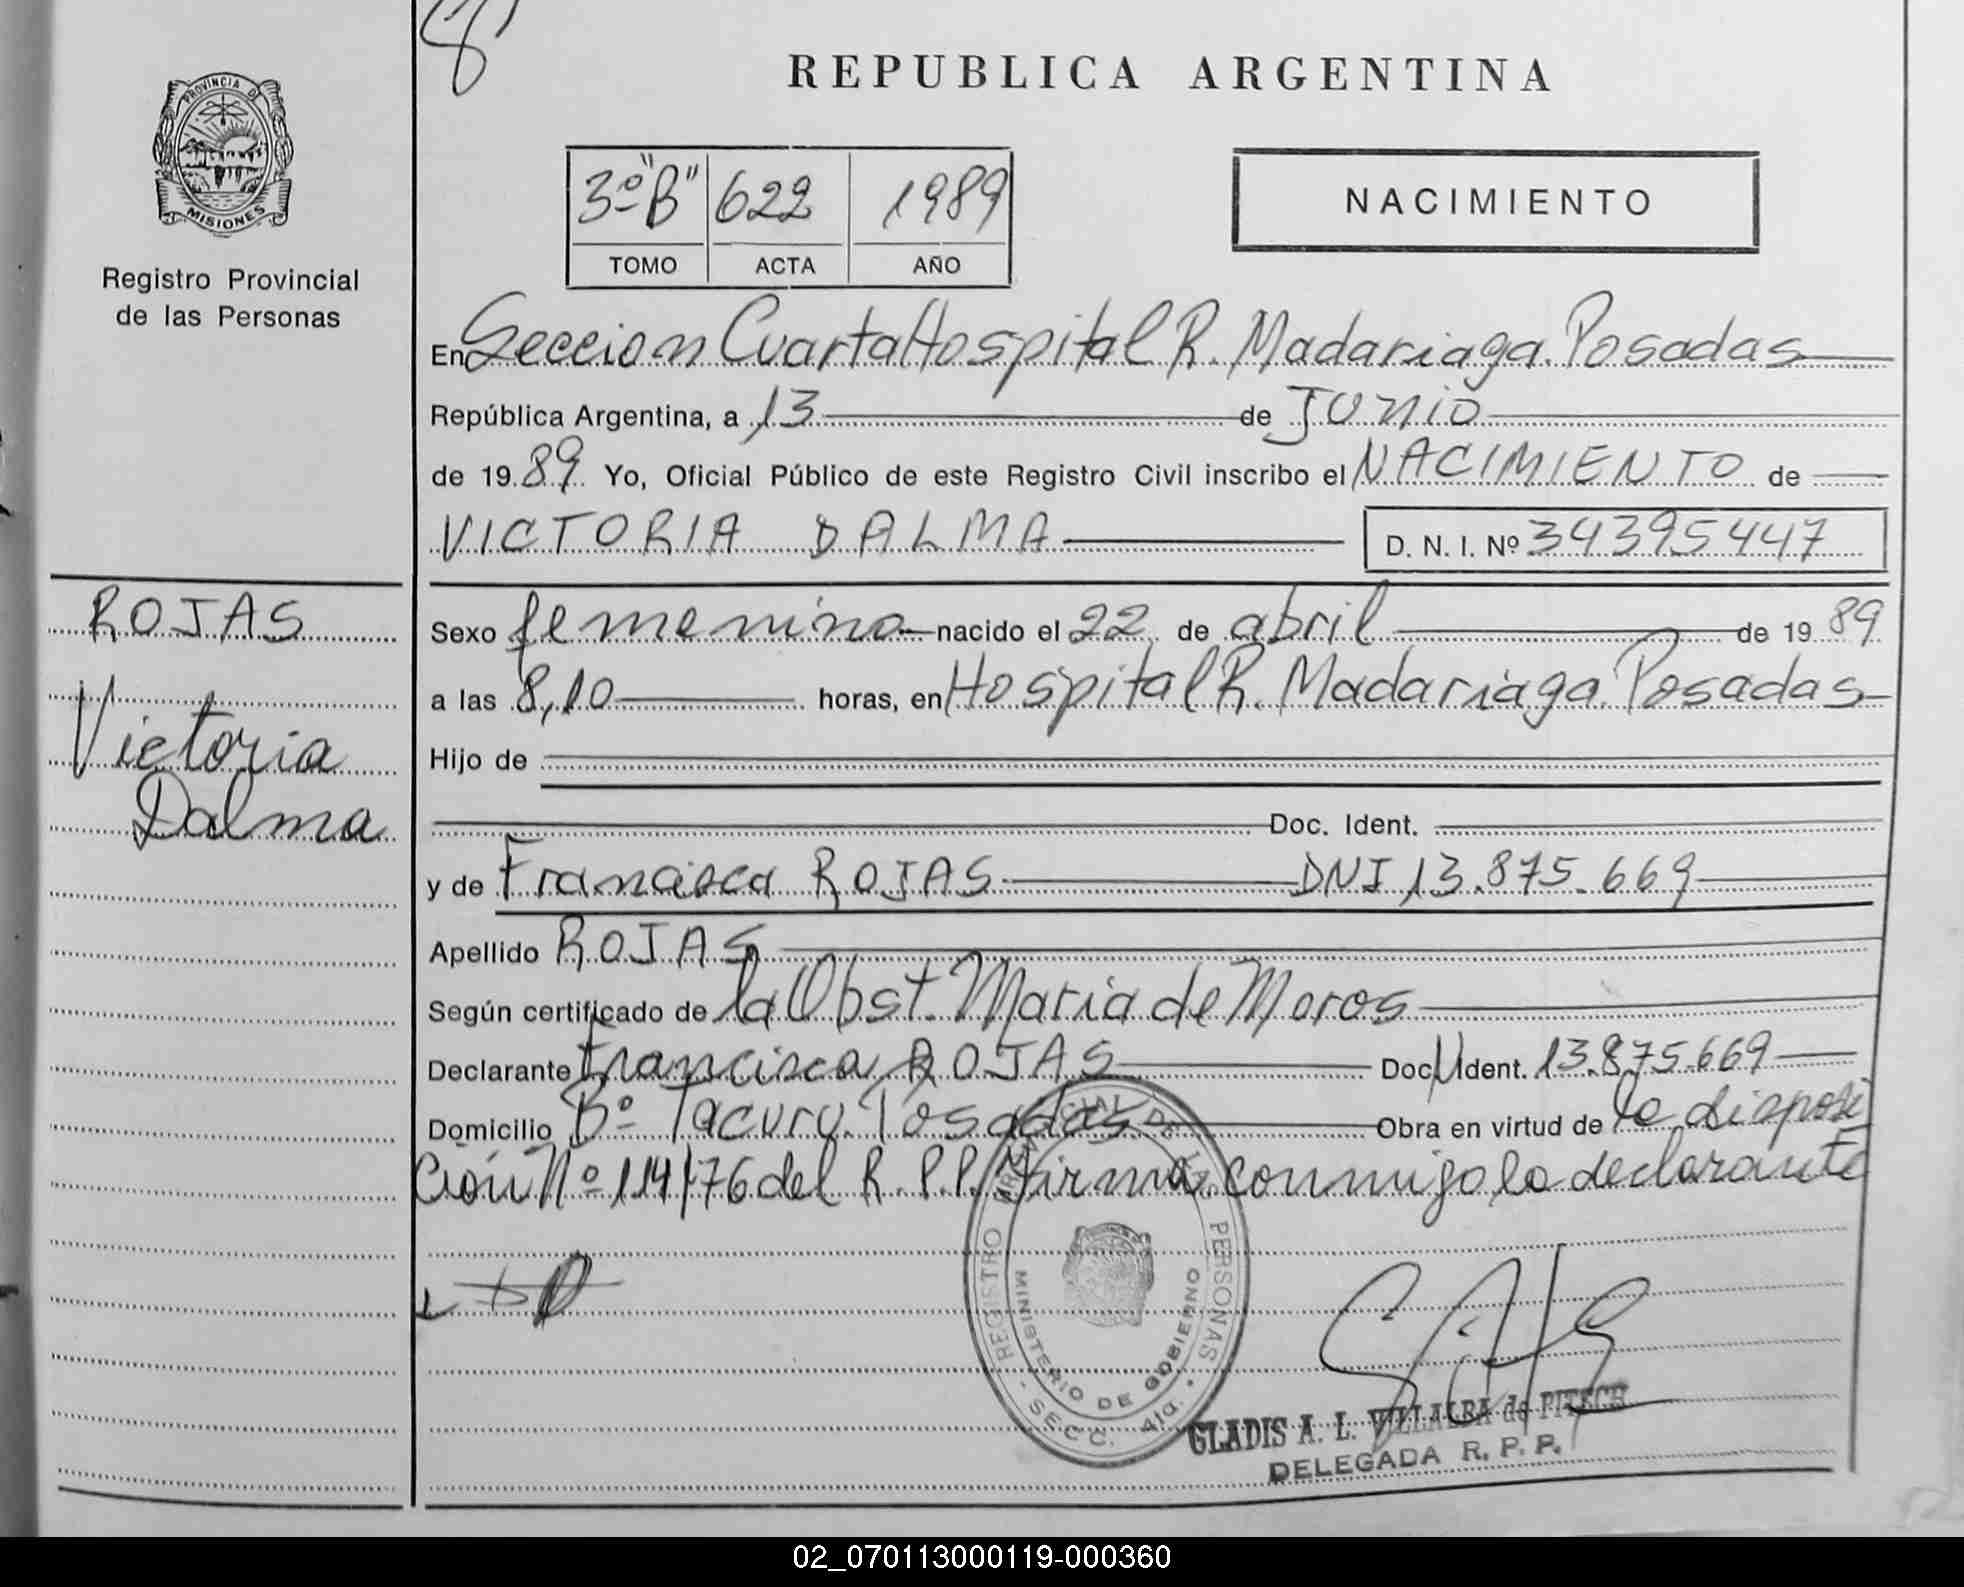 REPUBLICA ARGENTINA
PROVINCIA DE
MISIONES
Registro Provincial
de las Personas
3º "B" 622 1989
TOMO ACTA AÑO
NACIMIENTO
En Seccion Cuarta Hospital R. Madariaga. Posadas
República Argentina, a 13 de Junio
de 19 89 Yo, Oficial Público de este Registro Civil inscribo el NACIMIENTO de
VICTORIA DALMA D. N. I. Nº 34395447
ROJAS
Victoria
Dalma
Sexo femenino nacido el 22 de abril de 19 89
a las 8,10 horas, en Hospital R. Madariaga. Posadas
Hijo de
Doc. Ident.
y de Francisca ROJAS DNI 13.875.669
Apellido ROJAS
Según certificado de la Obst. Maria de Moros
Declarante Francisca ROJAS Doc. Ident. 13.875.669
Domicilio Bº Tacuru. Posadas Obra en virtud de la disposi
ción Nº 114/76 del R. P. P. Firma conmigo la declarante
REGISTRO PROVINCIAL DE LAS PERSONAS
MINISTERIO DE GOBIERNO
- SECC. 4ta. -
GLADIS A. L. VILLALBA de PITECH
DELEGADA R. P. P.
02_070113000119-000360